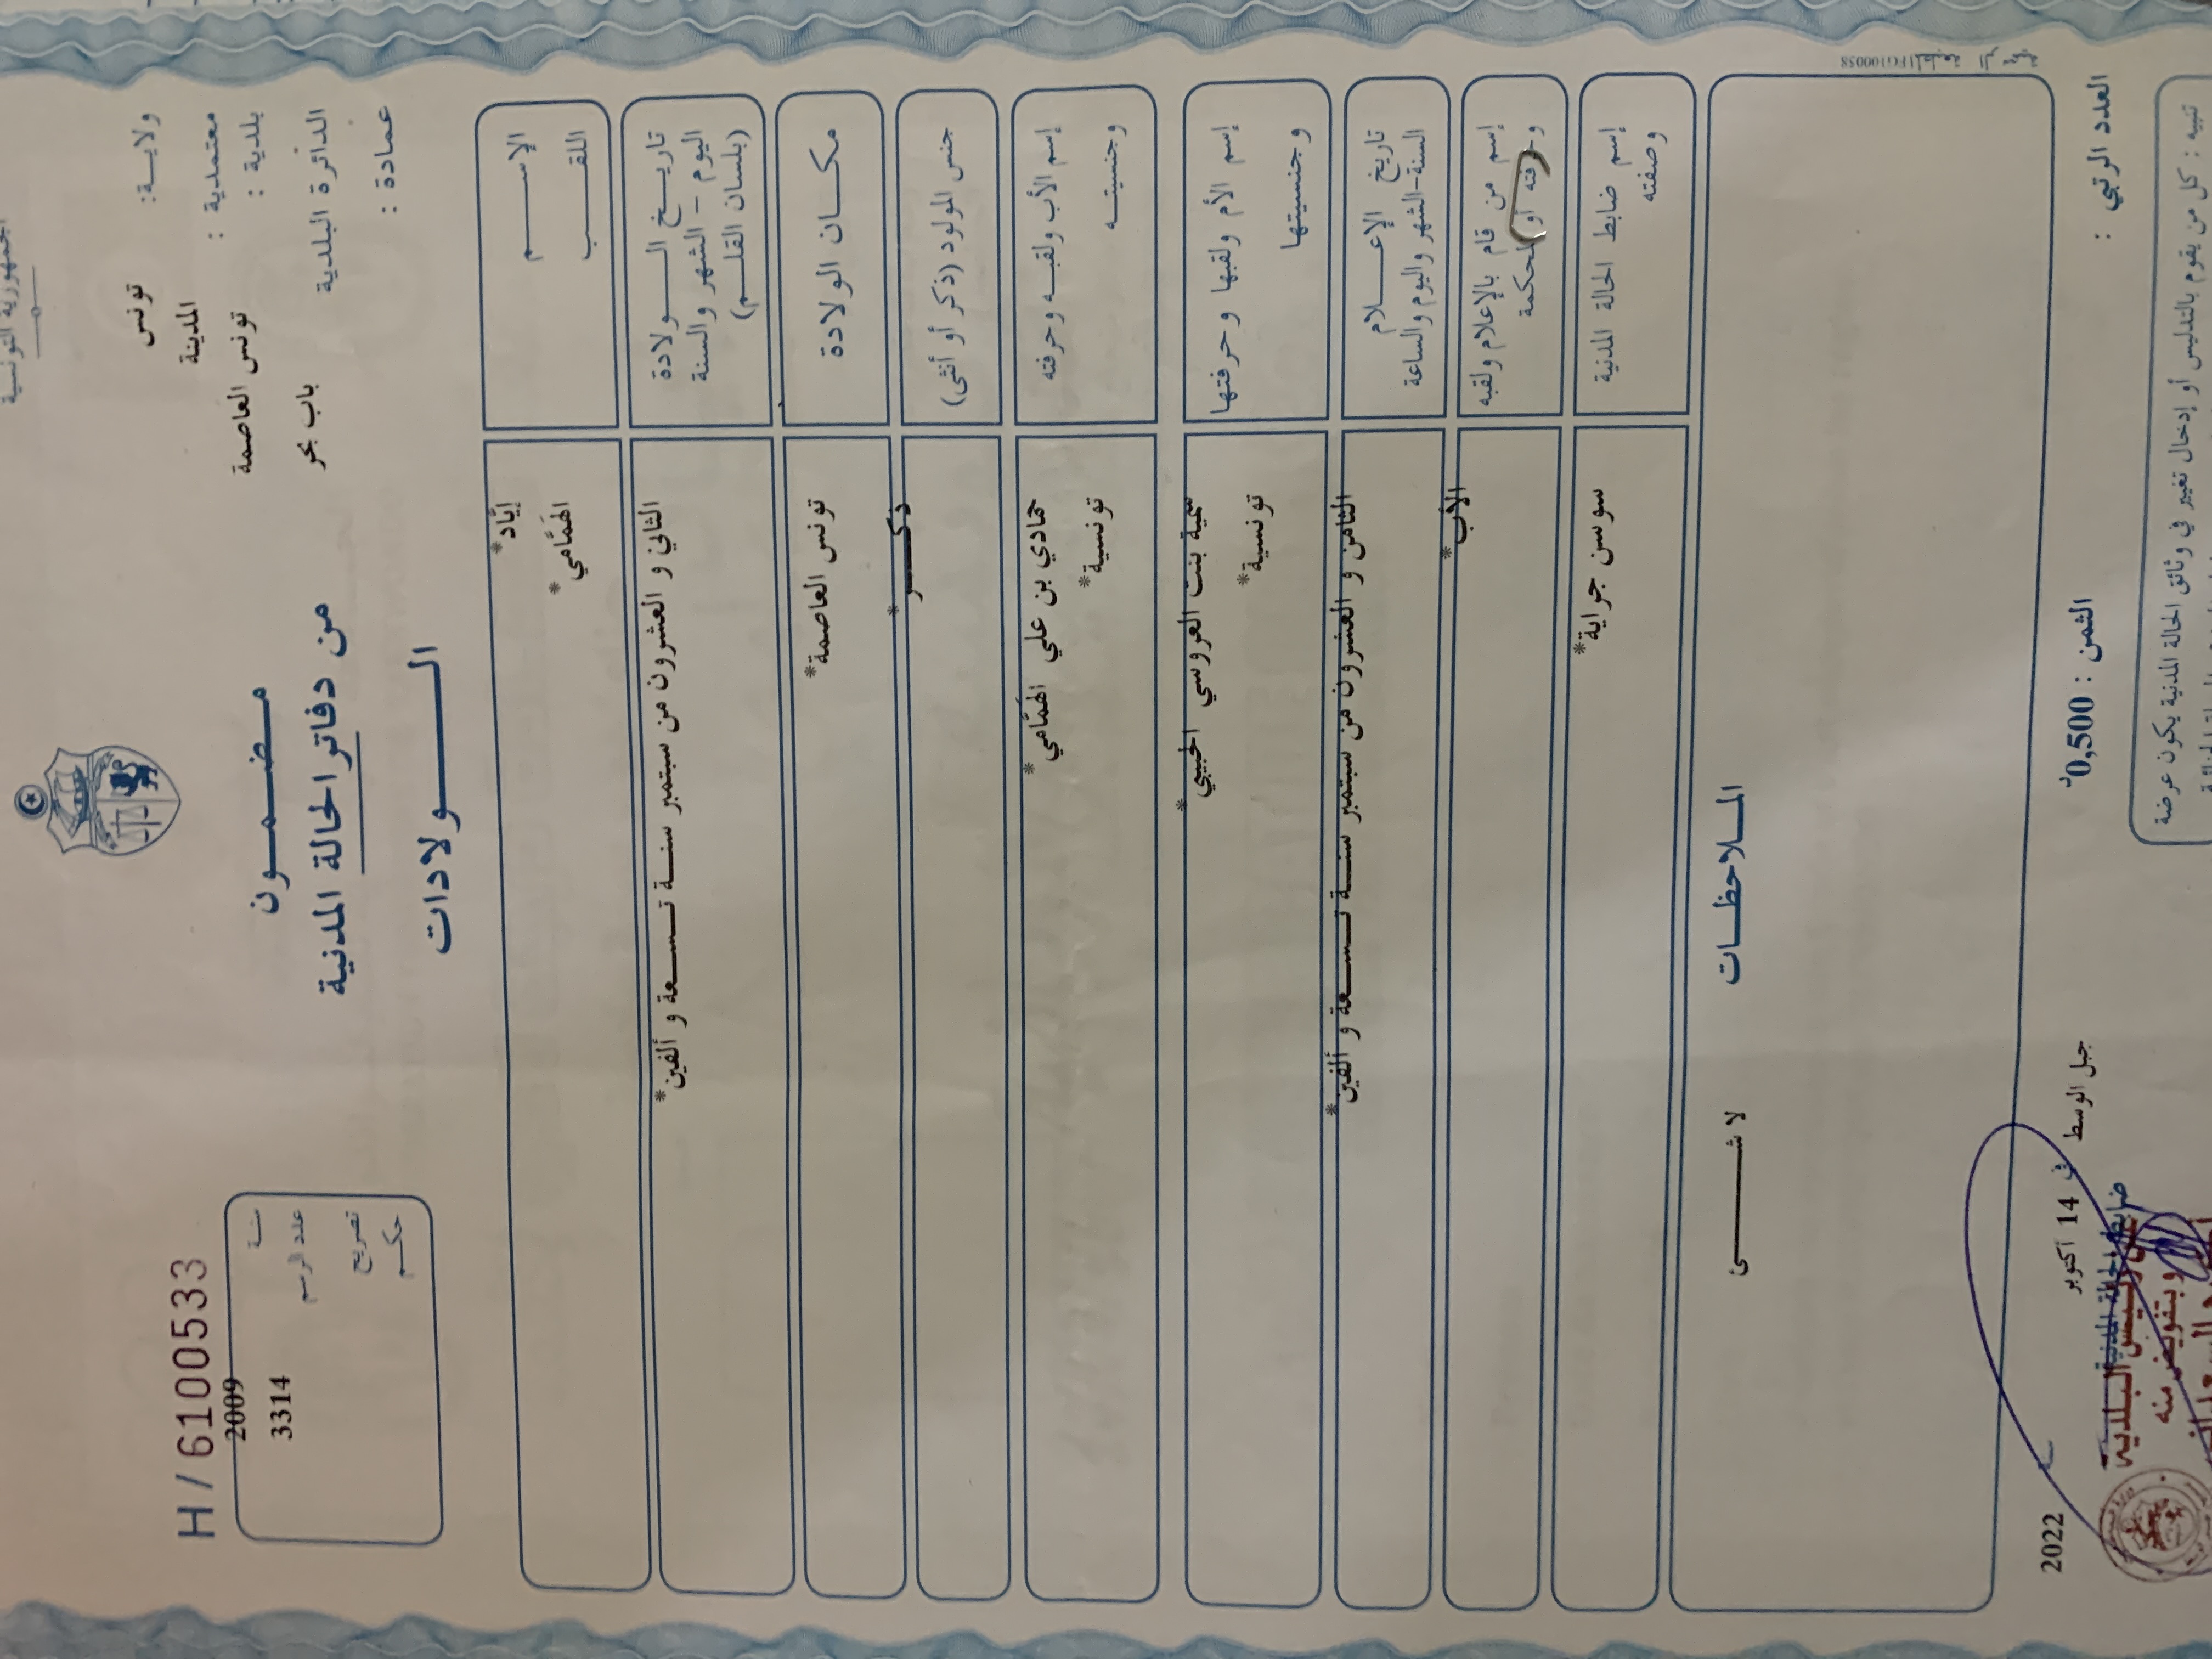 الجمهورية التونسية
ولايــة: تونس
معتمدية : المدينة
بلدية : تونس العاصمة
الدائرة البلدية باب بحر
عمادة :
H/6100533
سنة 2009
عدد الرسم 3314
تصريح
حكم
مـضـمـــون
من دفاتر الحالة المدنية
الـــــولادات
الإســـــم إيّاد*
اللقـــب الهمّامي*
تاريــخ الـــولادة
اليوم - الشهر والسنة
(بلسان القلـــم)
الثاني و العشرون من سبتمبر سنـــة تـــسعة و ألفين*
مكـــان الولادة تونس العاصمة*
جنس المولود (ذكر أو أنثى) ذكـــر*
إسم الأب ولقبـــه وحرفته حمادي بن علي الهمّامي*
وجنسيتـــه تونسية*
إسم الأم ولقبها وحرفتها سمية بنت العروسي الحبيبي*
وجنسيتها تونسية*
تاريخ الإعـــلام
السنة-الشهر واليوم والساعة
الثامن و العشرون من سبتمبر سنـــة تـــسعة و ألفين*
إسم من قام بالإعلام ولقبه
وحرفته أو المحكمة
الأب*
إسم ضابط الحالة المدنية
وصفته
سوسن جراية*
المـــلاحظـــات
لا شـــــئ
العدد الرتبي :
الثمن : 0,500د
جبل الوسط
في 14 أكتوبر
سنة 2022
ضابط الحالة المدنية
عن رئيس البلدية
وبتفويض منه
تنبيه : كل من يقوم بالتدليس أو إدخال تغيير في وثائق الحالة المدنية يكون عرضة